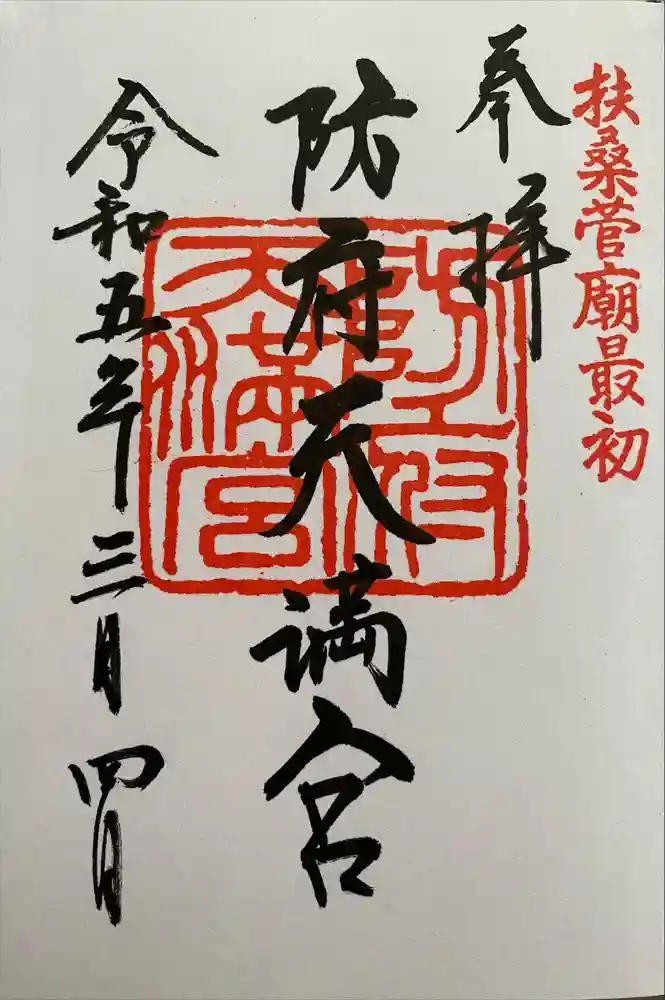 扶桑菅廟最初
奉拝
防府天満宮
令和五年三月四日
防府天満宮